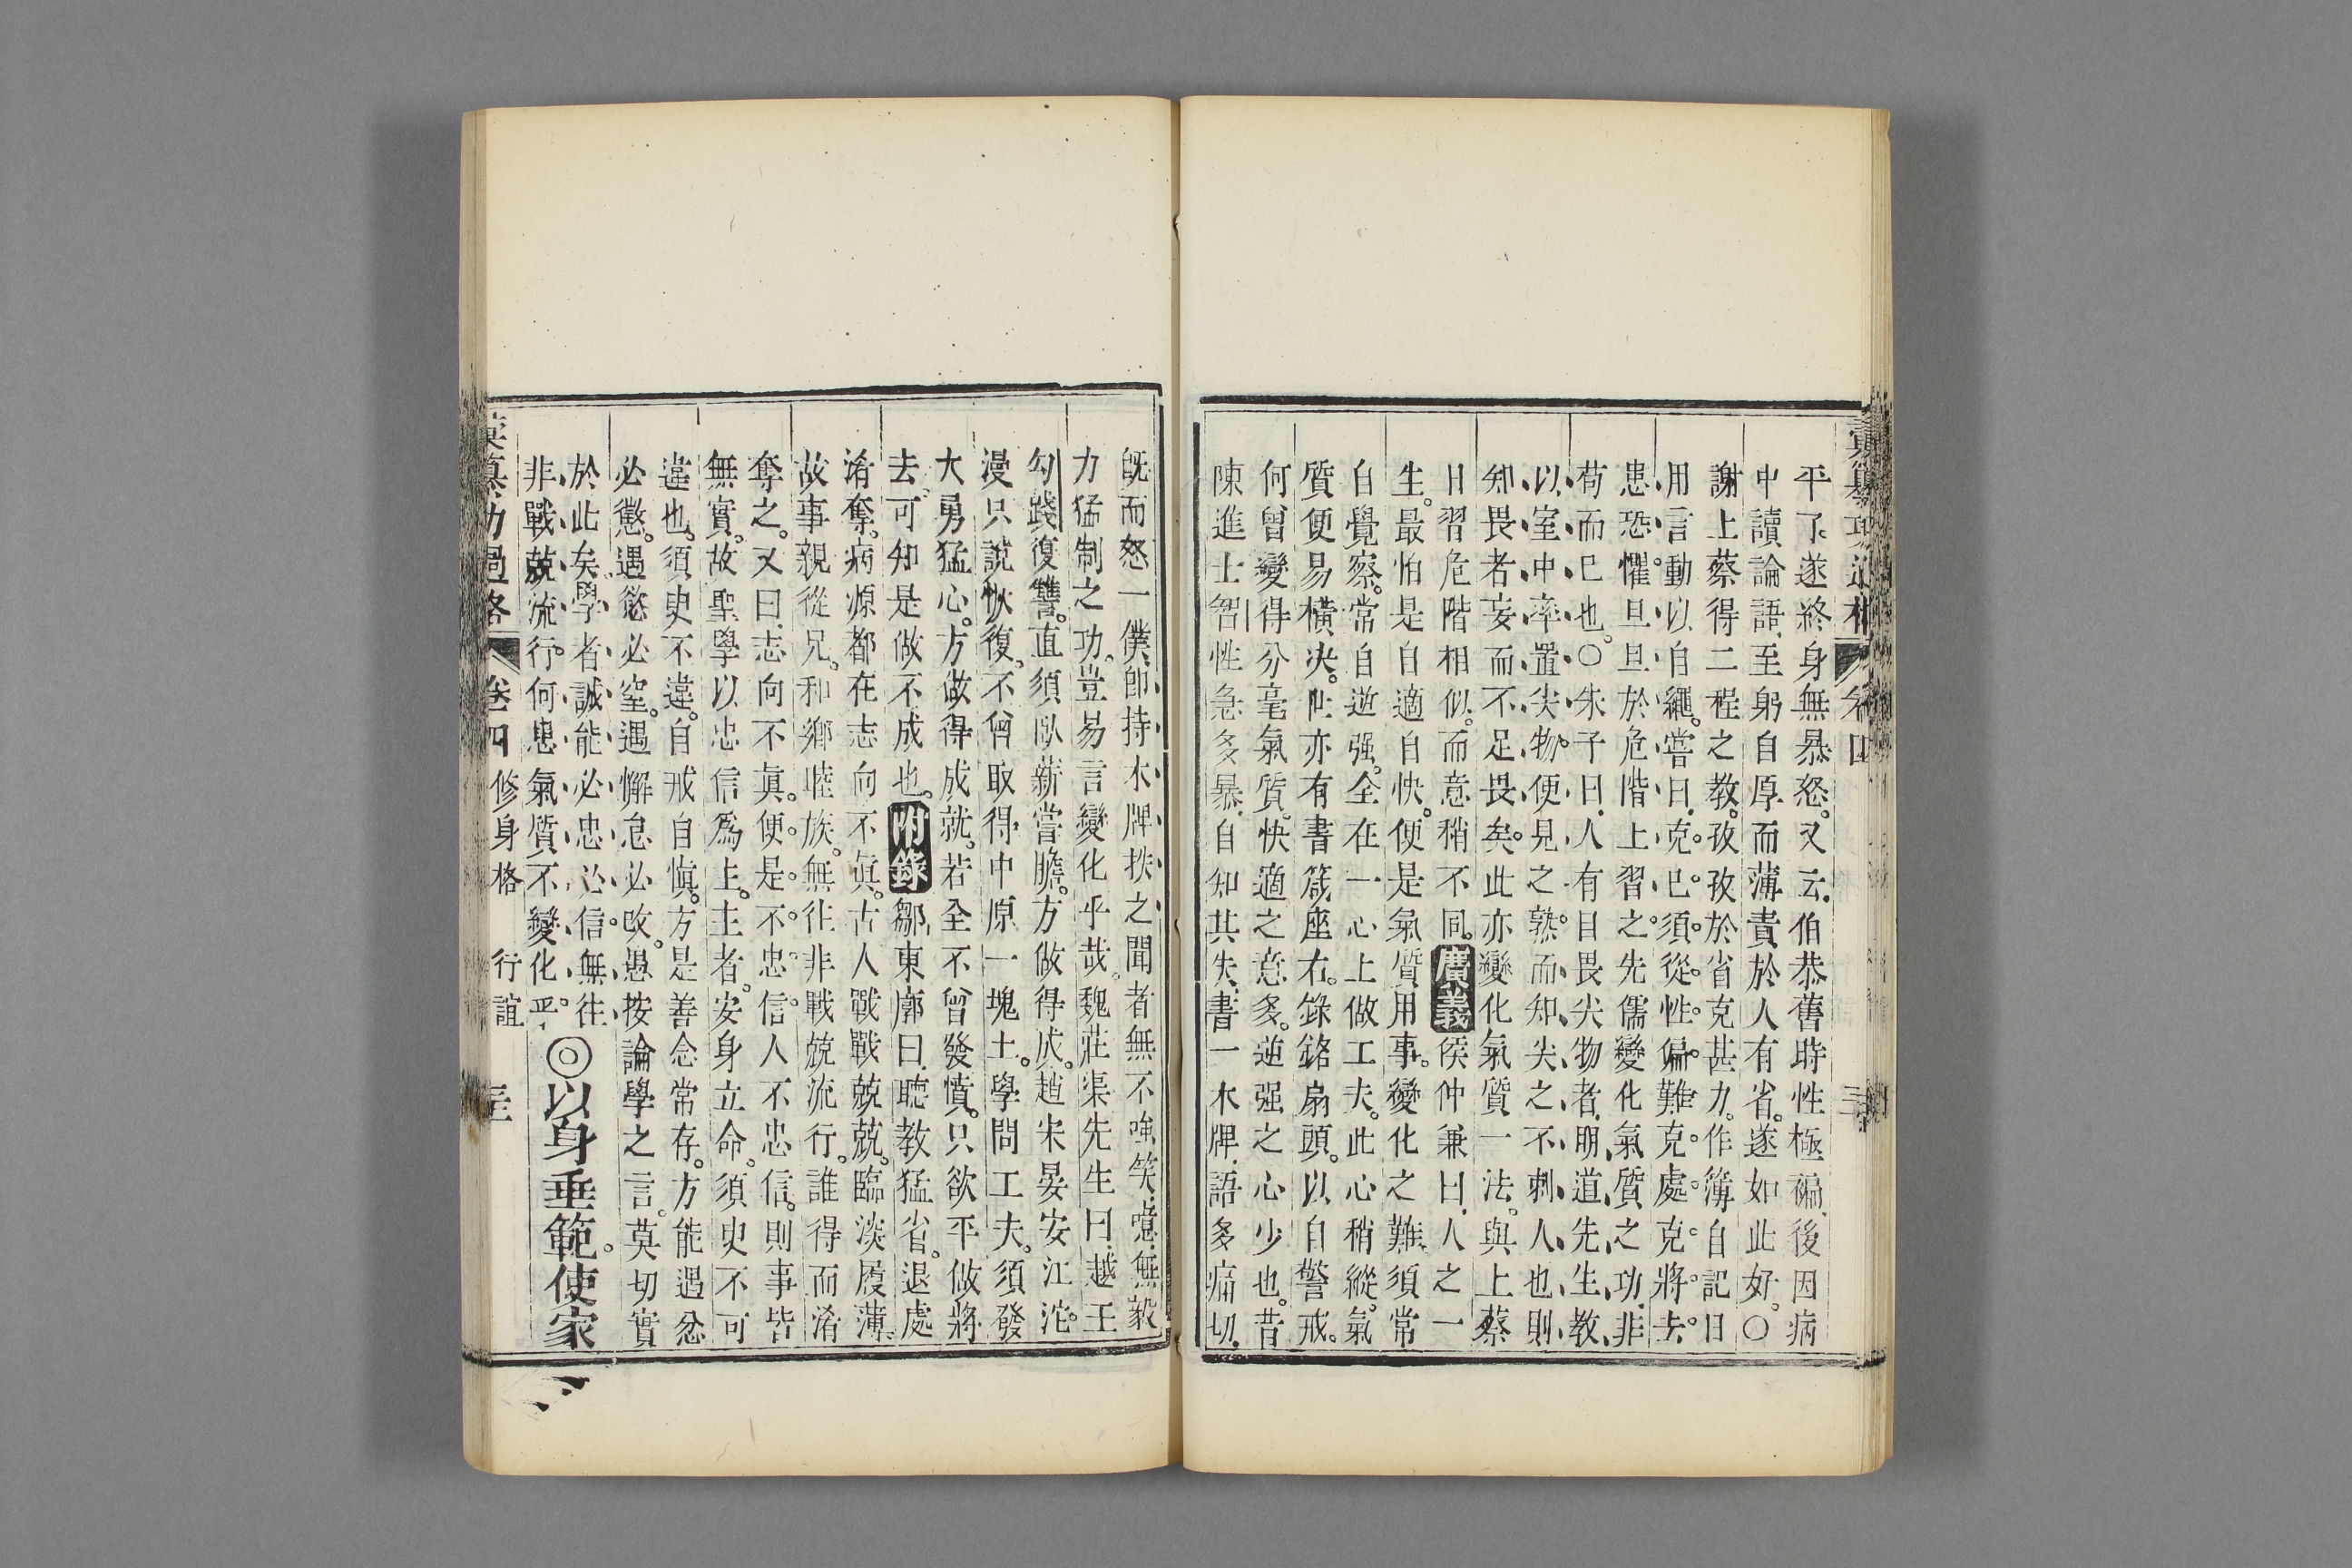 平了。遂終身無暴怒。又云。伯恭舊時性極褊。後因病
中讀論語。至躬自厚而薄責於人有省。遂如此好。〇
謝上蔡得二程之教。孜孜於省克甚力。作簿自記日
用言動以自繩。嘗曰。克己。須從性偏難克處克將去。
患恐懼。旦旦於危階上習之。先儒變化氣質之功。非
苟而已也。〇朱子曰。人有目畏尖物者。明道先生教
以室中率置尖物。便見之熟。而知尖之不刺人也。則
知畏者妄而不足畏矣。此亦變化氣質一法。與上蔡
日習危階相似。而意稍不同。廣義侯仲兼曰。人之一
生。最怕是自適自快。便是氣質用事。變化之難。須常
自覺察。常自遊强。全在一心上做工夫。此心稍縱。氣
質便易橫决。世亦有書箴座右。錄銘扇頭。以自警戒。
何曾變得分毫氣質。快適之意多。遊强之心少也。昔
陳進士智性急多暴。自知其失。書一木牌。語多痛切。
既而怒一僕。卽持木牌抶之。聞者無不嗤笑。噫。無毅
力猛制之功。豈易言變化乎哉。魏莊渠先生曰。越王
勾踐復讐。直須臥薪嘗膽。方做得成。趙宋晏安江沱。
漫只說恢復。不曾取得中原一塊土。學問工夫。須發
大勇猛心。方做得成就。若全不曾發憤。只欲平做將
去。可知是做不成也。附錄鄒東廓曰。聽教猛省。退處
淆奪。病源都在志向不眞。古人戰戰兢兢。臨淡履薄。
故事親從兄。和鄉睦族。無往非戰兢流行。誰得而淆
奪之。又曰。志向不眞。便是不忠信。人不忠信。則事皆
無實。故聖學以忠信爲上。主者。安身立命。須臾不可
違也。須臾不違。自戒自愼。方是善念常存。方能遇忿
必懲。遇慾必窒。遇懈怠必改。愚按論學之言。莫切實
於此矣。學者誠能必忠必信。無往
非戰兢流行。何患氣質不變化乎。◎以身垂範。使家
彙纂功過格 卷四 修身格 行誼